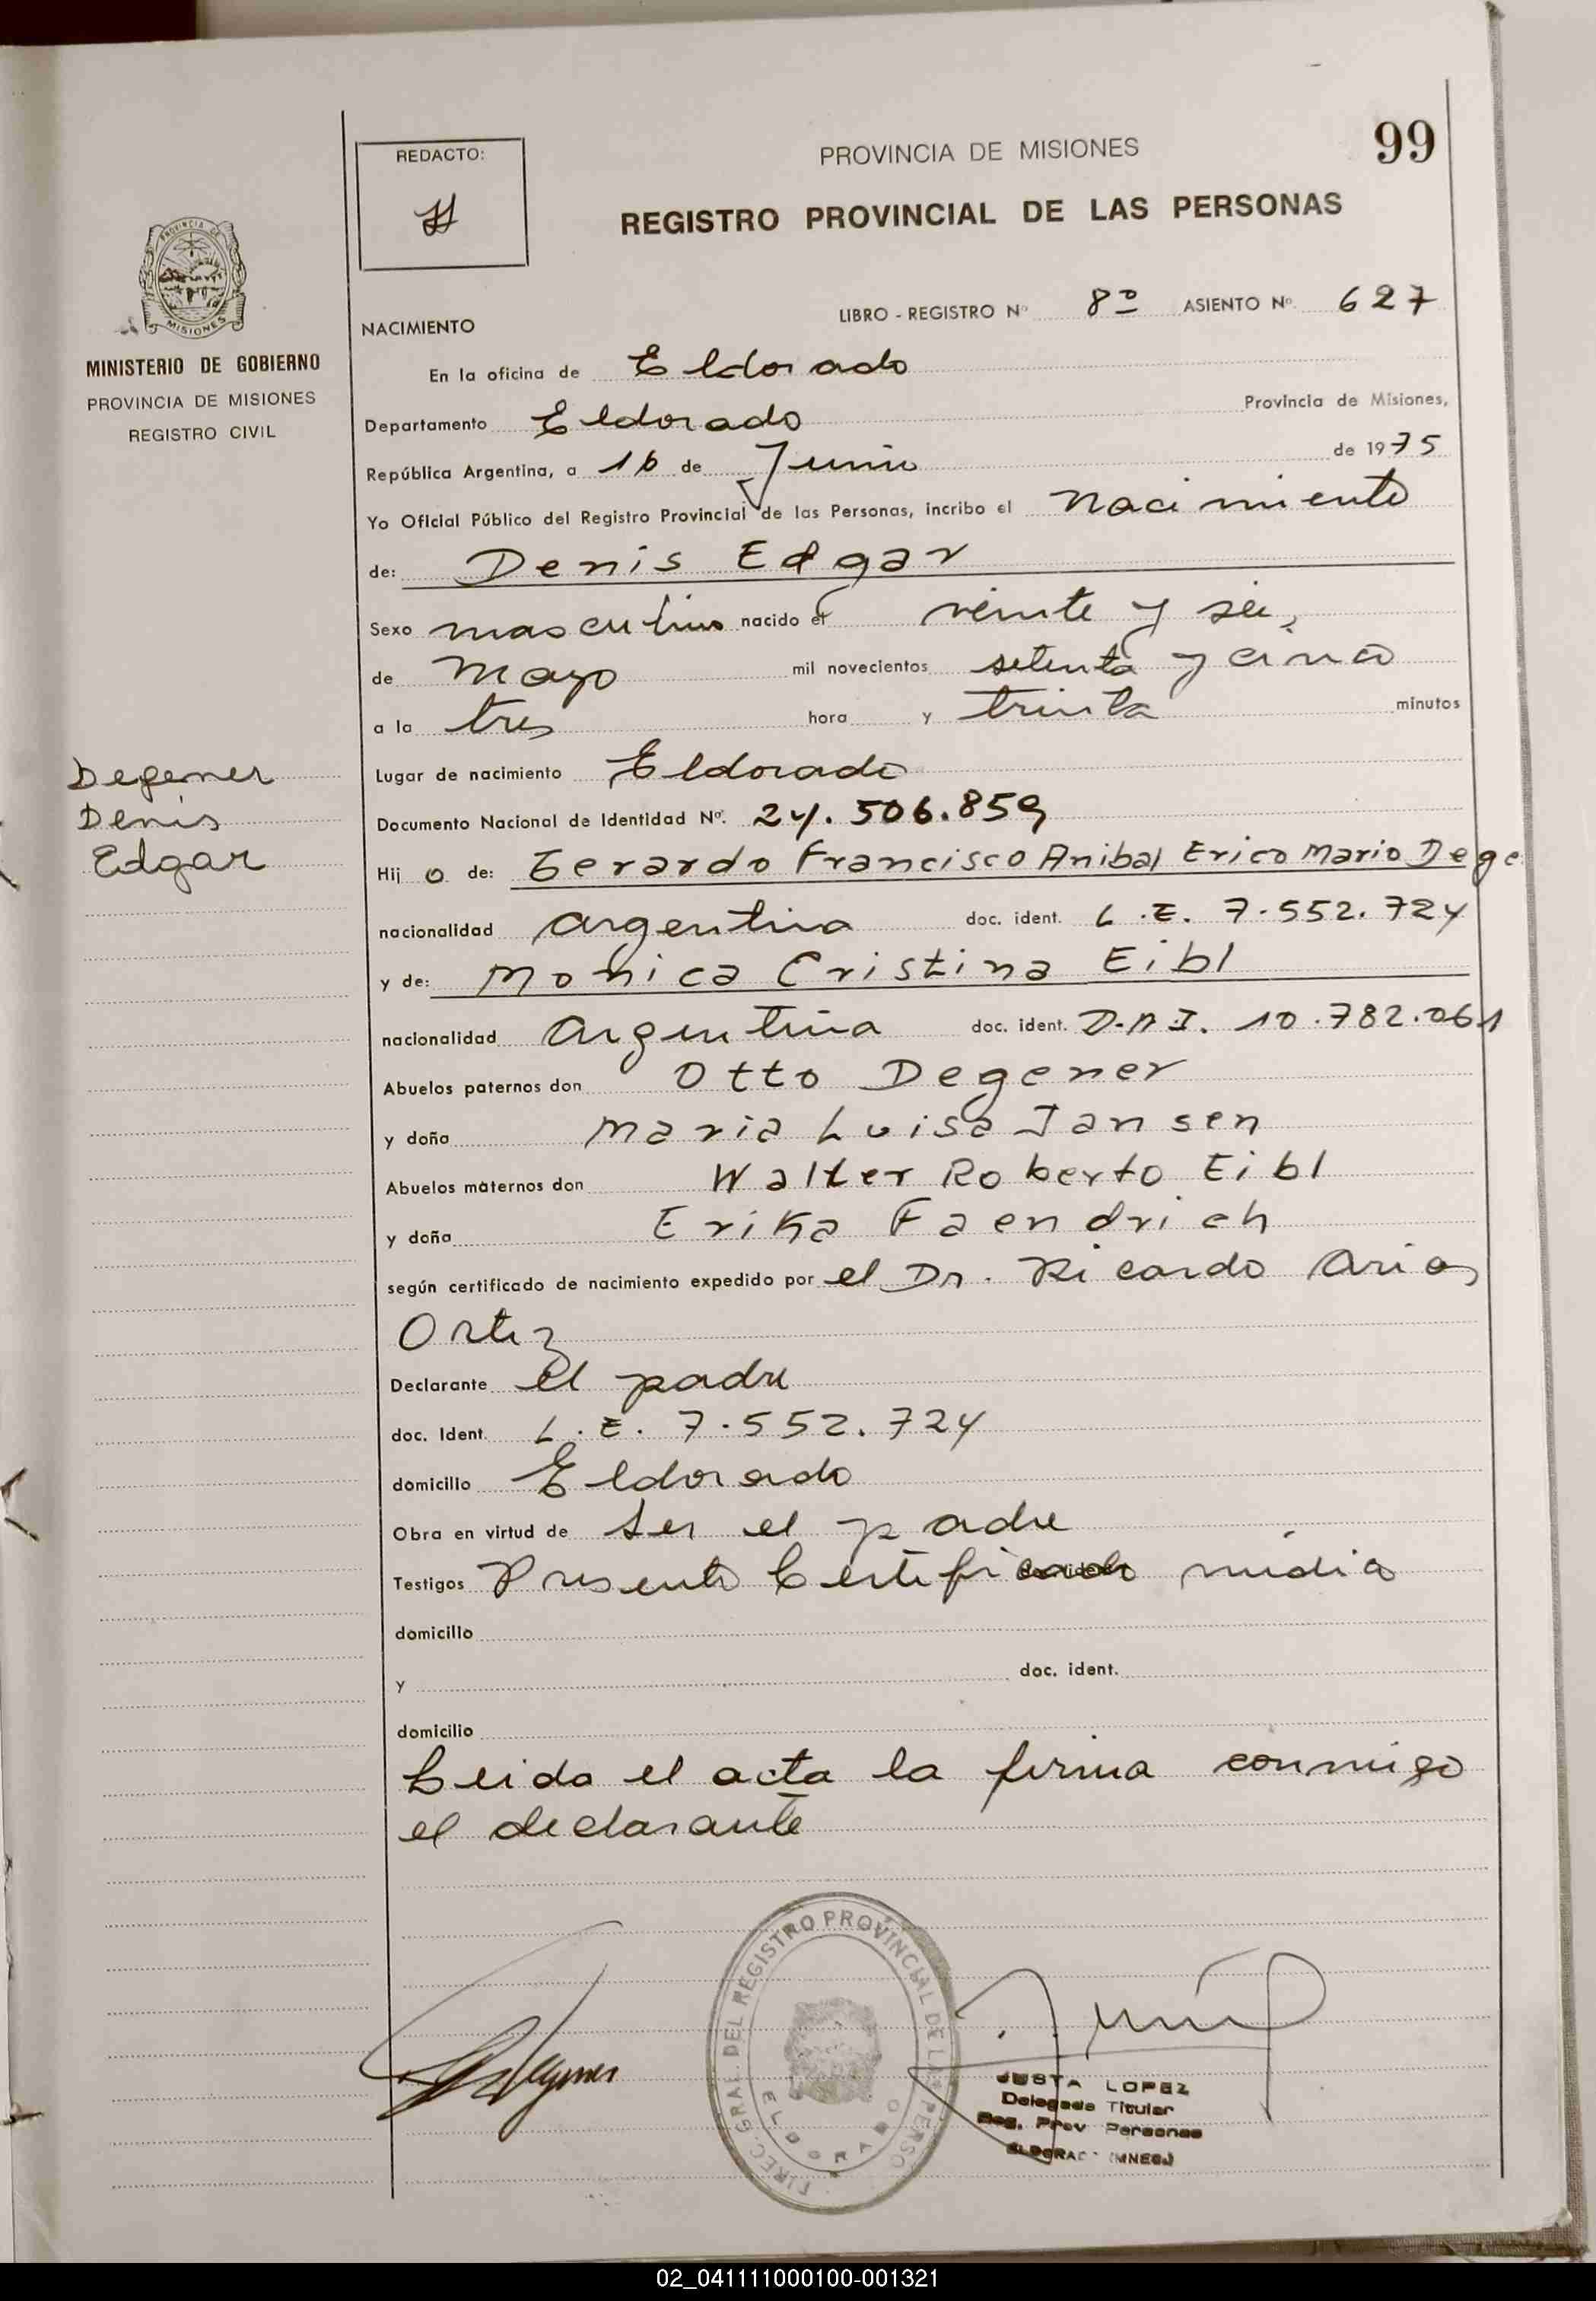 REDACTO:
PROVINCIA DE MISIONES
99
REGISTRO PROVINCIAL DE LAS PERSONAS
MISIONES
MINISTERIO DE GOBIERNO
PROVINCIA DE MISIONES
REGISTRO CIVIL
LIBRO - REGISTRO Nº 8º ASIENTO Nº 627
NACIMIENTO
En la oficina de Eldorado
Departamento Eldorado Provincia de Misiones,
República Argentina, a 16 de Junio de 1975
Yo Oficial Público del Registro Provincial de las Personas, incribo el Nacimiento
de: Denis Edgar
Sexo masculino nacido el veinte y seis
de Mayo mil novecientos setenta y cinco
a la tres hora y treinta minutos
Degener
Denis
Edgar
Lugar de nacimiento Eldorado
Documento Nacional de Identidad Nº. 24.506.859
Hij o de: Gerardo Francisco Anibal Erico Mario Dege
nacionalidad Argentina doc. ident. L.E. 7.552.724
y de: Monica Cristina Eibl
nacionalidad Argentina doc. ident. D.N.I. 10.782.061
Abuelos paternos don Otto Degener
y doña Maria Luisa Jansen
Abuelos maternos don Walter Roberto Eibl
y doña Erika Faendrich
según certificado de nacimiento expedido por el Dr. Ricardo Arias
Ortiz
Declarante el padre
doc. Ident. L.E. 7.552.724
domicilio Eldorado
Obra en virtud de ser el padre
Testigos Presento Certificado médico
domicilio
y doc. ident.
domicilio
Leida el acta la firma conmigo
el declarante
DIREC. GRAL. DEL REGISTRO PROVINCIAL DE LAS PERSO
ELDORADO
JUSTA LOPEZ
Delegada Titular
Reg. Prov Personas
ELDORADO (MNES.)
02_041111000100-001321